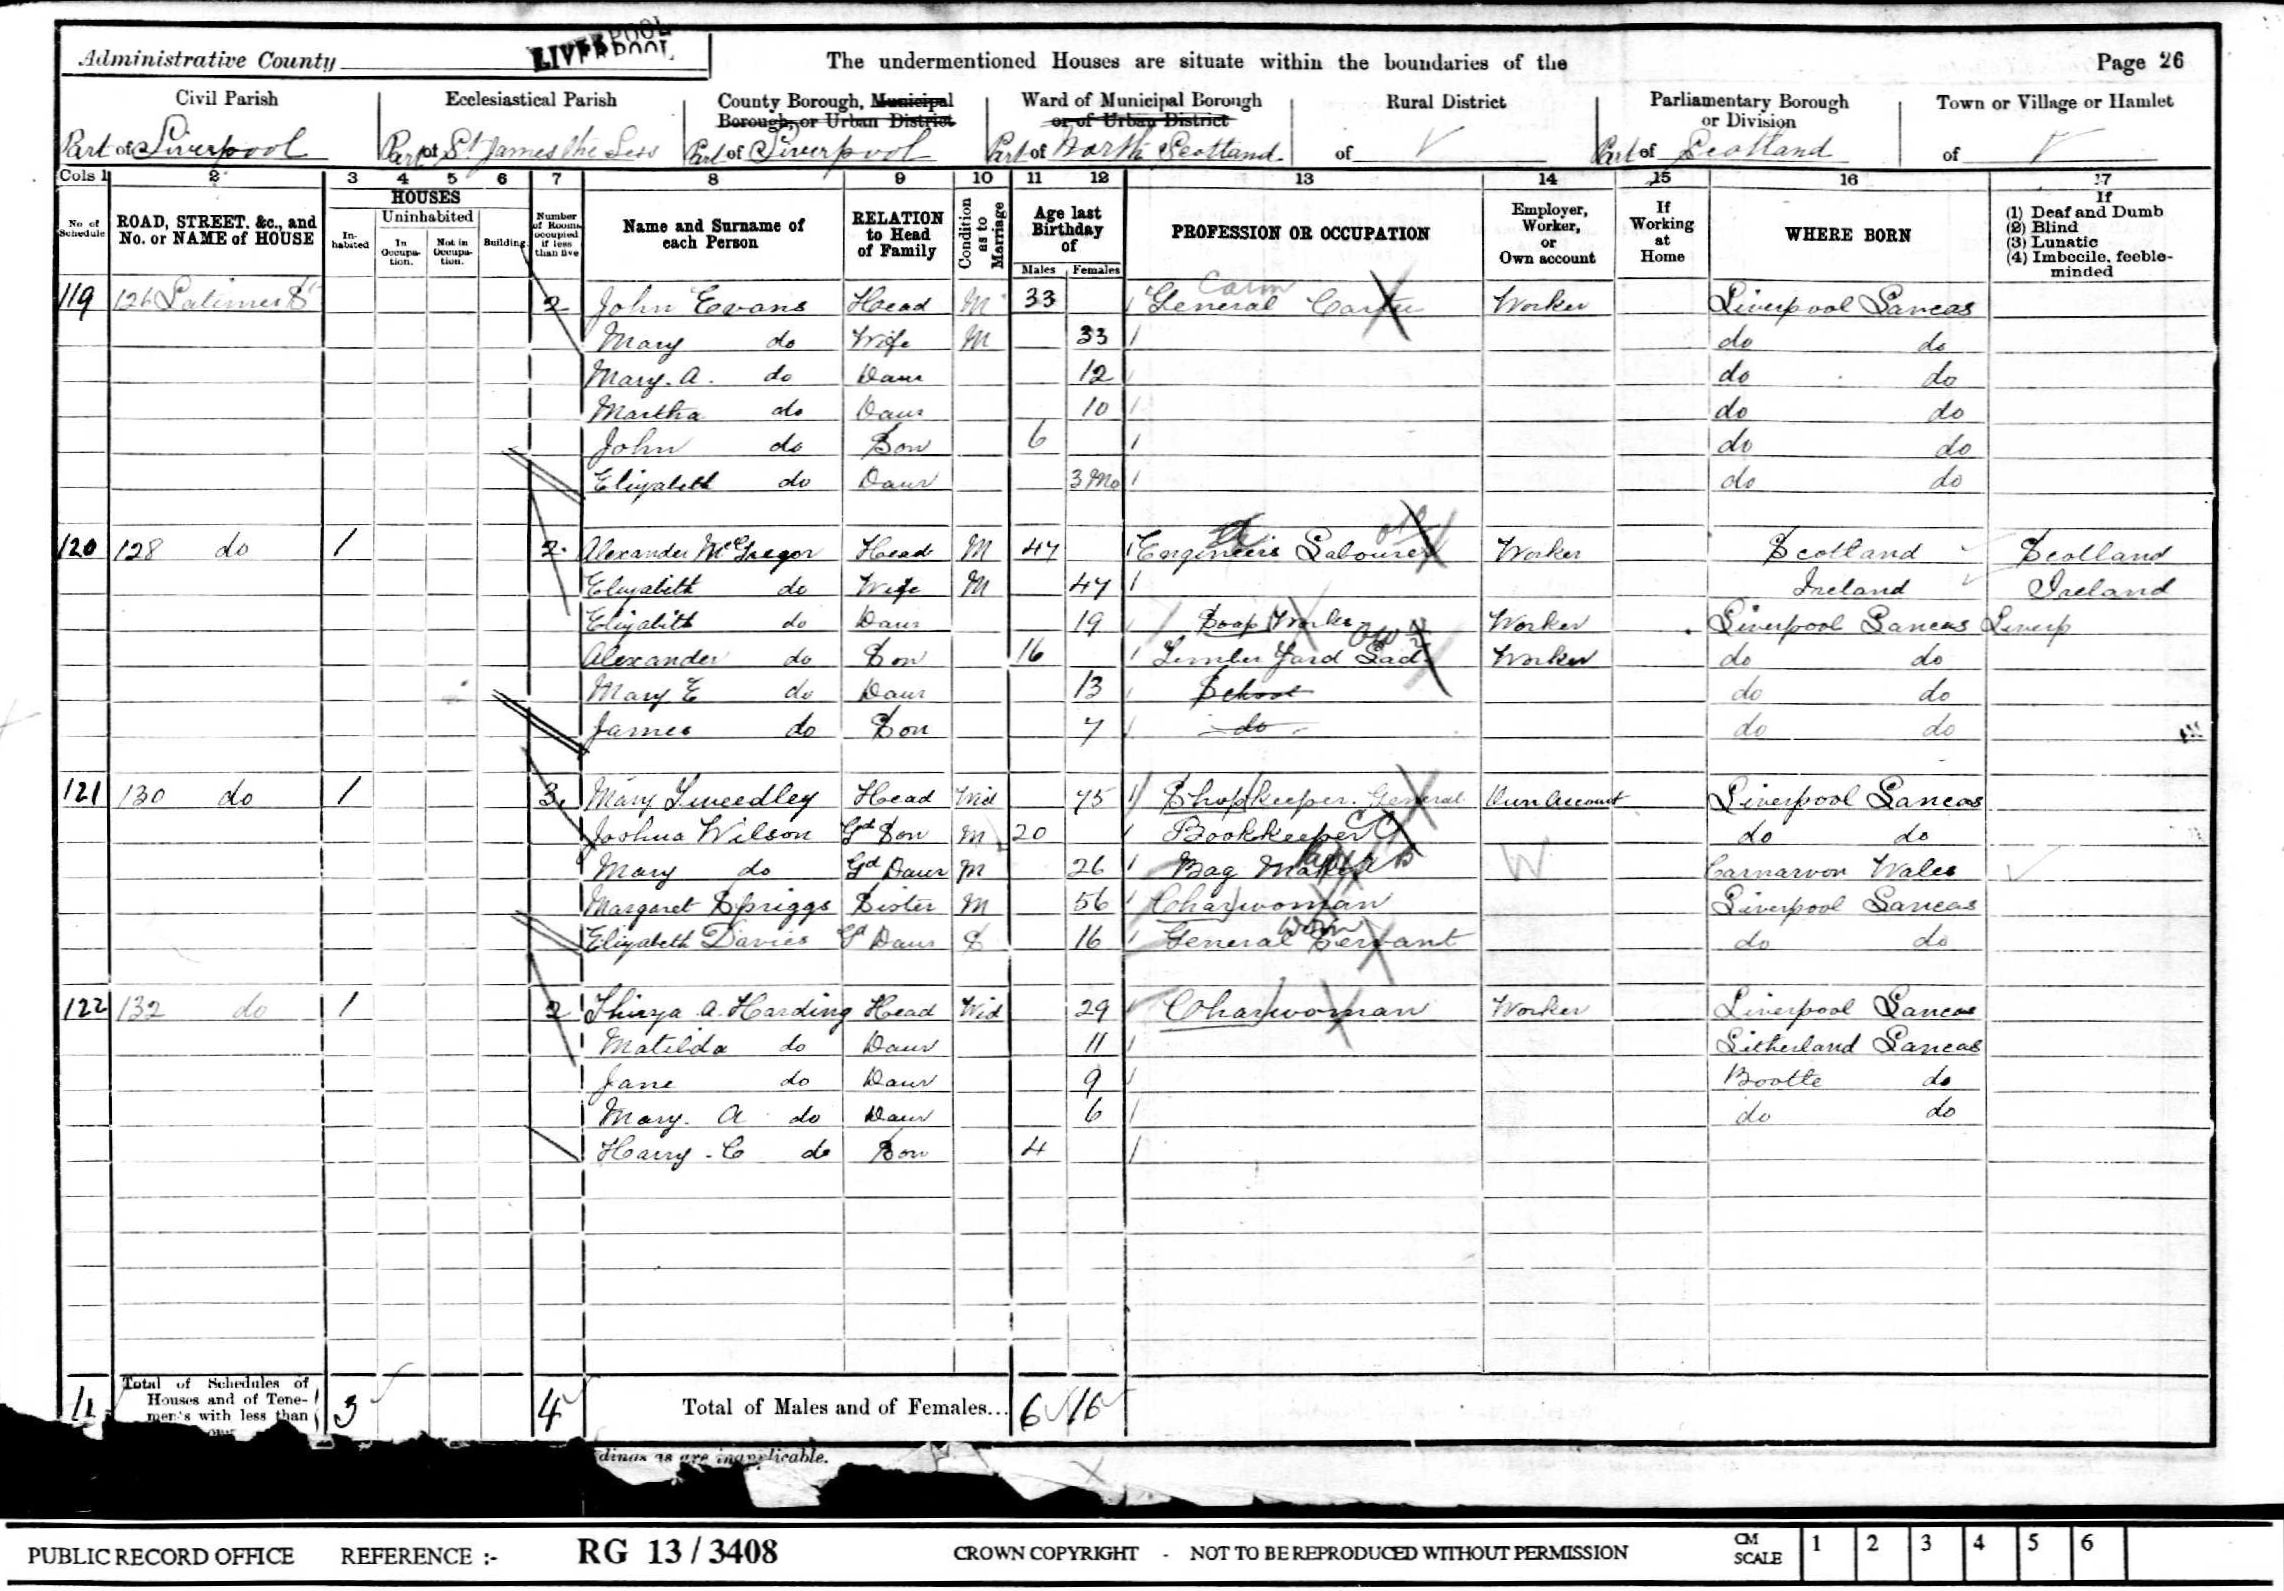 Administrative County LIVERPOOL
The undermentioned Houses are situate within the boundaries of the
Page 26
Civil Parish
Part of Liverpool
Ecclesiastical Parish
Part of St James the Less
County Borough, Municipal
Borough, or Urban District
Part of Liverpool
Ward of Municipal Borough
or of Urban District
Part of North Scotland
Rural District
of
Parliamentary Borough
or Division
Part of Scotland
Town or Village or Hamlet
of
Cols 1 2 3 4 5 6 7 8 9 10 11 12 13 14 15 16 17
No. of Schedule
ROAD, STREET, &c., and No. or NAME of HOUSE
HOUSES
Inhabited
Uninhabited
In Occupation.
Not in Occupation.
Building
Number of Rooms occupied if less than five
Name and Surname of each Person
RELATION to Head of Family
Condition as to Marriage
Age last Birthday of
Males Females
PROFESSION OR OCCUPATION
Employer, Worker, or Own account
If Working at Home
WHERE BORN
If
(1) Deaf and Dumb
(2) Blind
(3) Lunatic
(4) Imbecile, feeble-minded
119 126 Latimer St 2 John Evans Head M 33 General Carter Worker Liverpool Lancas
Mary do Wife M 33 do do
Mary. A. do Daur 12 do do
Martha do Daur 10 do do
John do Son 6 do do
Elizabeth do Daur 3 Mo do do
120 128 do 1 2 Alexander McGregor Head M 47 Engineers Labourer Worker Scotland Scotland
Elizabeth do Wife M 47 Ireland Ireland
Elizabeth do Daur 19 Soap Works Worker Liverpool Lancas Liverp
Alexander do Son 16 Timber Yard Lad Worker do do
Mary E do Daur 13 School do do
James do Son 7 do do do
121 130 do 1 3 Mary Tweedley Head Wid 75 Shopkeeper. General Own Account Liverpool Lancas
Joshua Wilson Gd Son M 20 Bookkeeper do do
Mary do Gd Daur M 26 Bag Maker W Carnarvon Wales
Margaret Spriggs Sister M 56 Charwoman Liverpool Lancas
Elizabeth Davies Gd Daur S 16 General Servant do do
122 132 do 1 2 Thirza A. Harding Head Wid 29 Charwoman Worker Liverpool Lancas
Matilda do Daur 11 Litherland Lancas
Jane do Daur 9 Bootle do
Mary. A do Daur 6 do do
Harry. C do Son 4
4 Total of Schedules of Houses and of Tenements with less than 3 4 Total of Males and of Females... 6 16
dings as are inapplicable.
PUBLIC RECORD OFFICE REFERENCE :- RG 13 / 3408 CROWN COPYRIGHT - NOT TO BE REPRODUCED WITHOUT PERMISSION CM SCALE 1 2 3 4 5 6